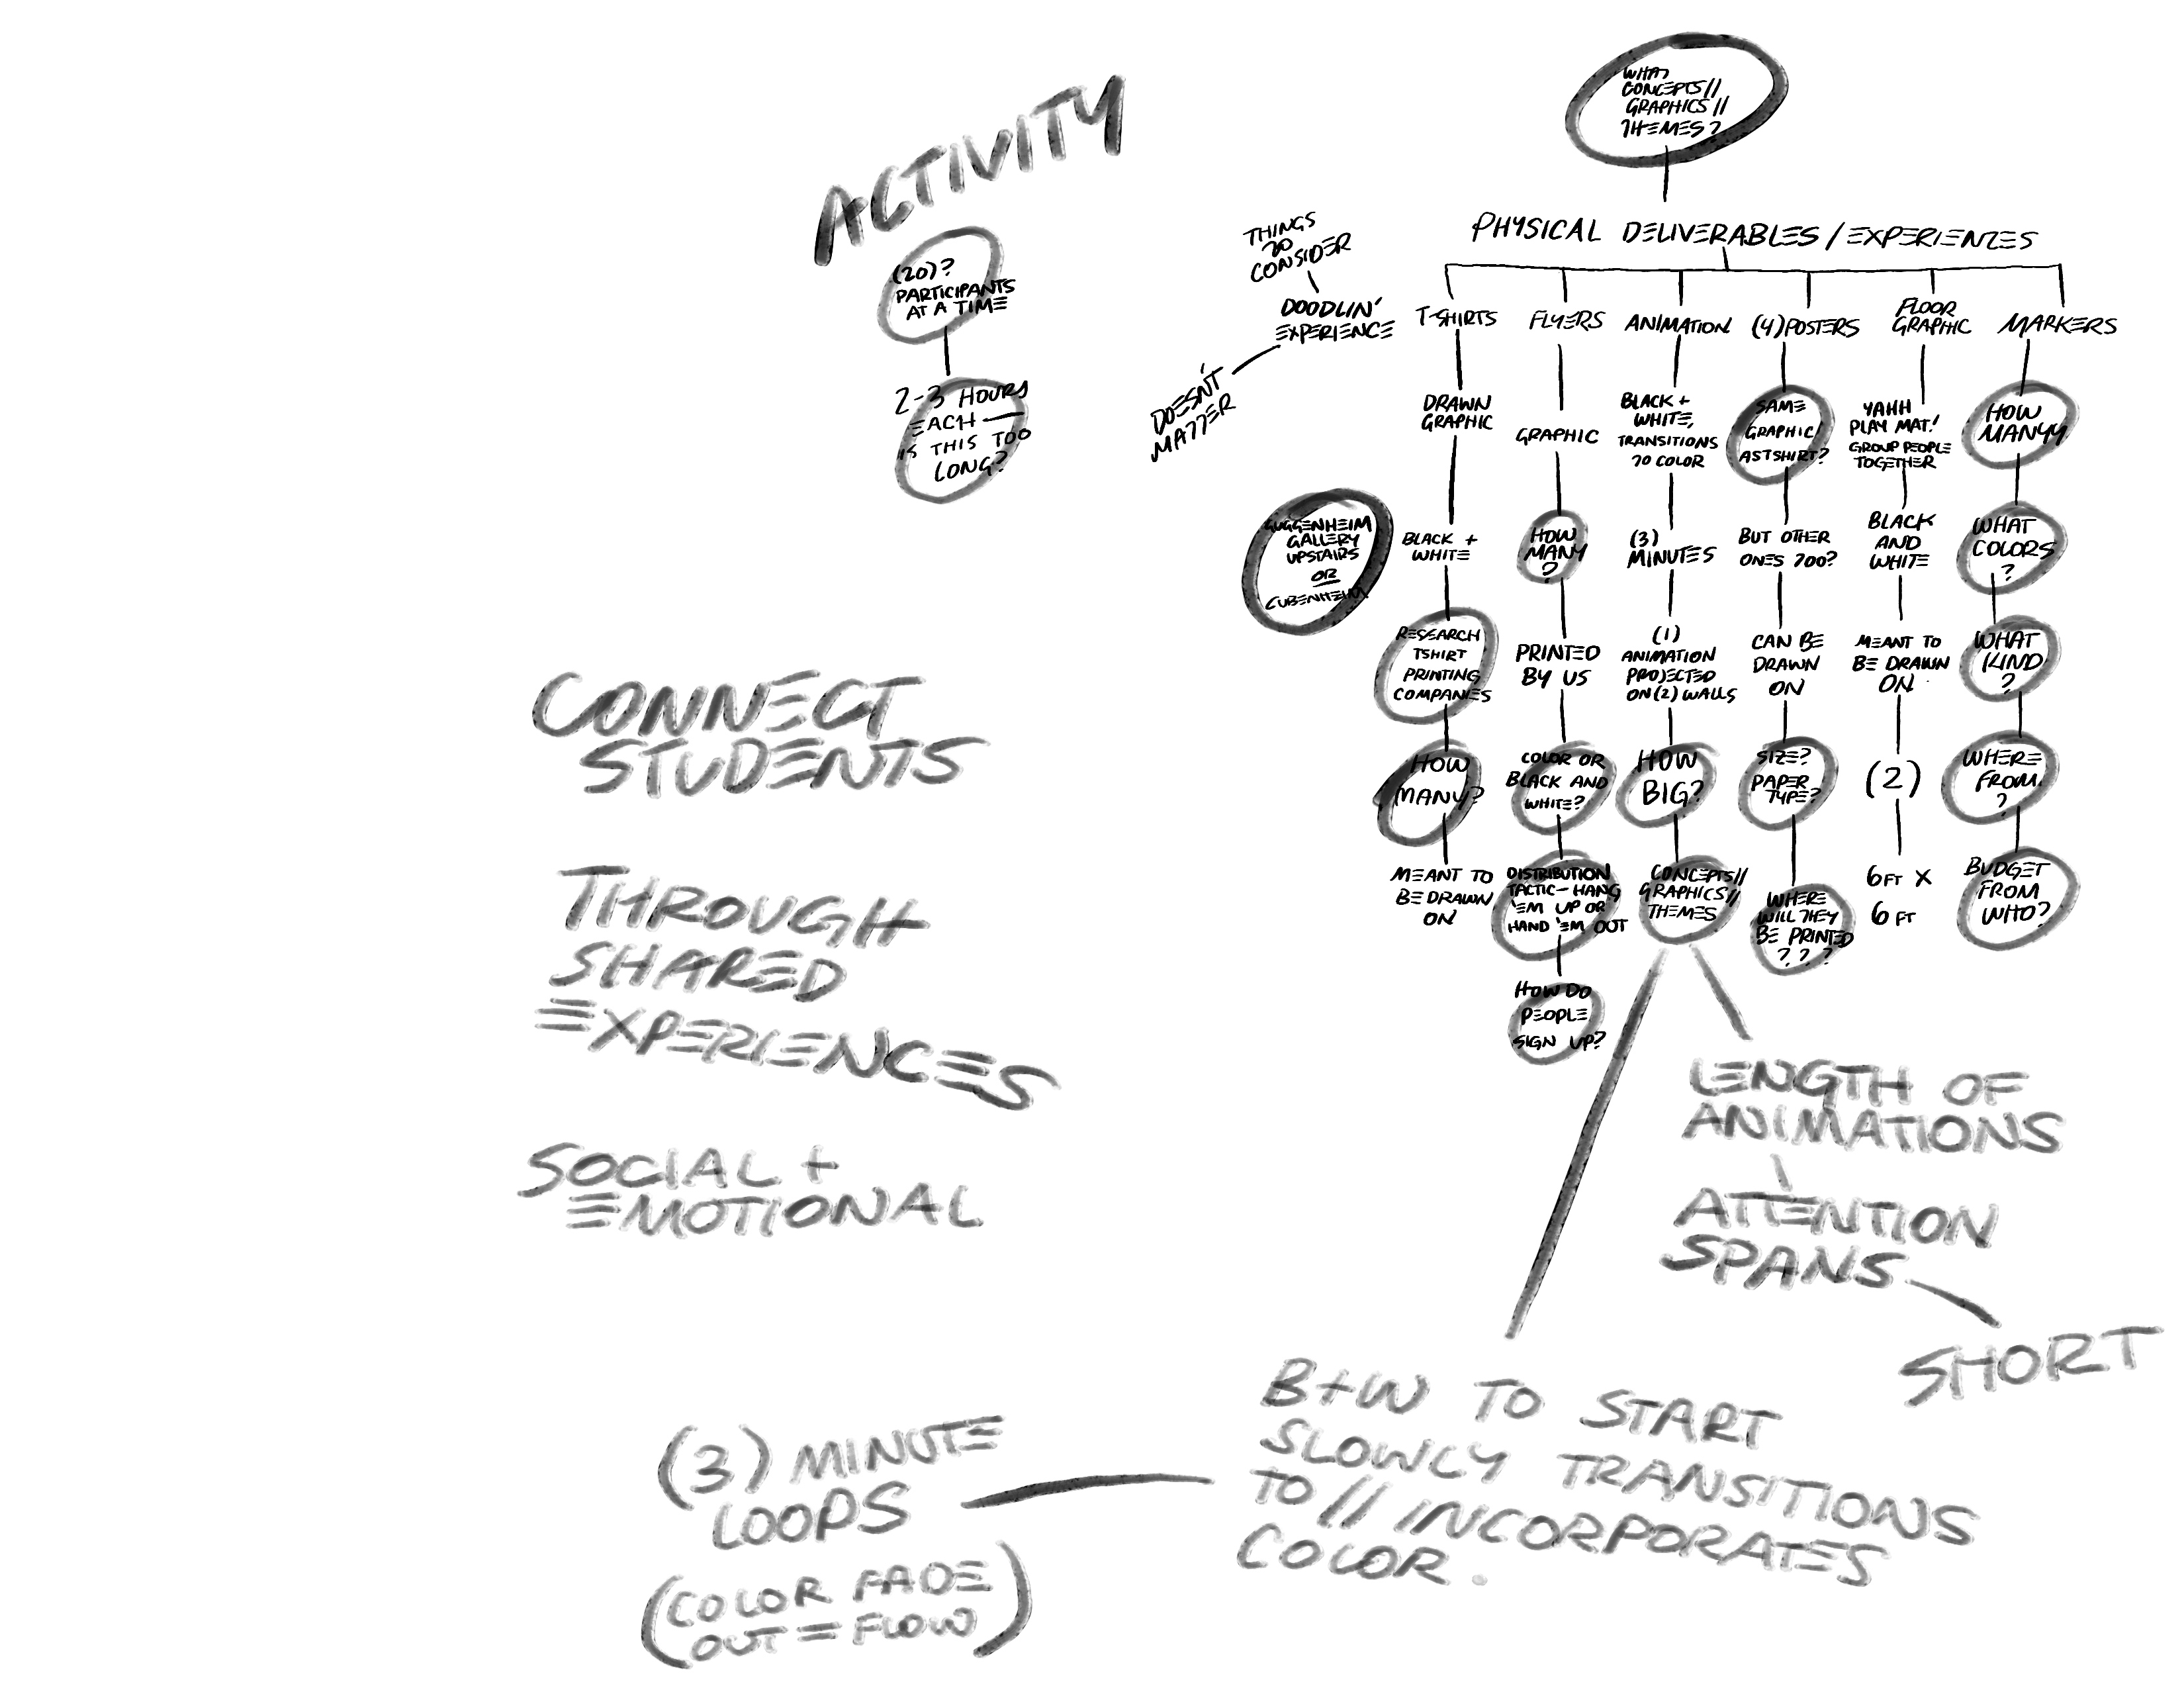 ACTIVITY
(20)?
PARTICIPANTS
AT A TIME
2-3 HOURS
EACH —
IS THIS TOO
LONG?
CONNECT
STUDENTS
THROUGH
SHARED
EXPERIENCES
SOCIAL +
EMOTIONAL
WHAT
CONCEPTS//
GRAPHICS//
THEMES?
PHYSICAL DELIVERABLES/EXPERIENCES
THINGS
TO
CONSIDER
DOODLIN'
EXPERIENCE
DOESN'T
MATTER
GUGGENHEIM
GALLERY
UPSTAIRS
OR
CUBENHEIM
T-SHIRTS
DRAWN
GRAPHIC
BLACK +
WHITE
RESEARCH
TSHIRT
PRINTING
COMPANIES
HOW
MANY?
MEANT TO
BE DRAWN
ON
FLYERS
GRAPHIC
HOW
MANY
?
PRINTED
BY US
COLOR OR
BLACK AND
WHITE?
DISTRIBUTION
TACTIC - HANG
'EM UP OR
HAND 'EM OUT
HOW DO
PEOPLE
SIGN UP?
ANIMATION
BLACK +
WHITE,
TRANSITIONS
TO COLOR
(3)
MINUTES
(1)
ANIMATION
PROJECTED
ON (2) WALLS
HOW
BIG?
CONCEPTS//
GRAPHICS//
THEMES
(4) POSTERS
SAME
GRAPHIC
AS TSHIRT?
BUT OTHER
ONES TOO?
CAN BE
DRAWN
ON
SIZE?
PAPER
TYPE?
WHERE
WILL THEY
BE PRINTED
? ? ?
FLOOR
GRAPHIC
YAHH
PLAY MAT!
GROUP PEOPLE
TOGETHER
BLACK
AND
WHITE
MEANT TO
BE DRAWN
ON
(2)
6 FT X
6 FT
MARKERS
HOW
MANYY
WHAT
COLORS
?
WHAT
KIND
?
WHERE
FROM
?
BUDGET
FROM
WHO?
LENGTH OF
ANIMATIONS
ATTENTION
SPANS
SHORT
B+W TO START
SLOWLY TRANSITIONS
TO // INCORPORATES
COLOR.
(3) MINUTE
LOOPS
(COLOR FADE
OUT = FLOW)